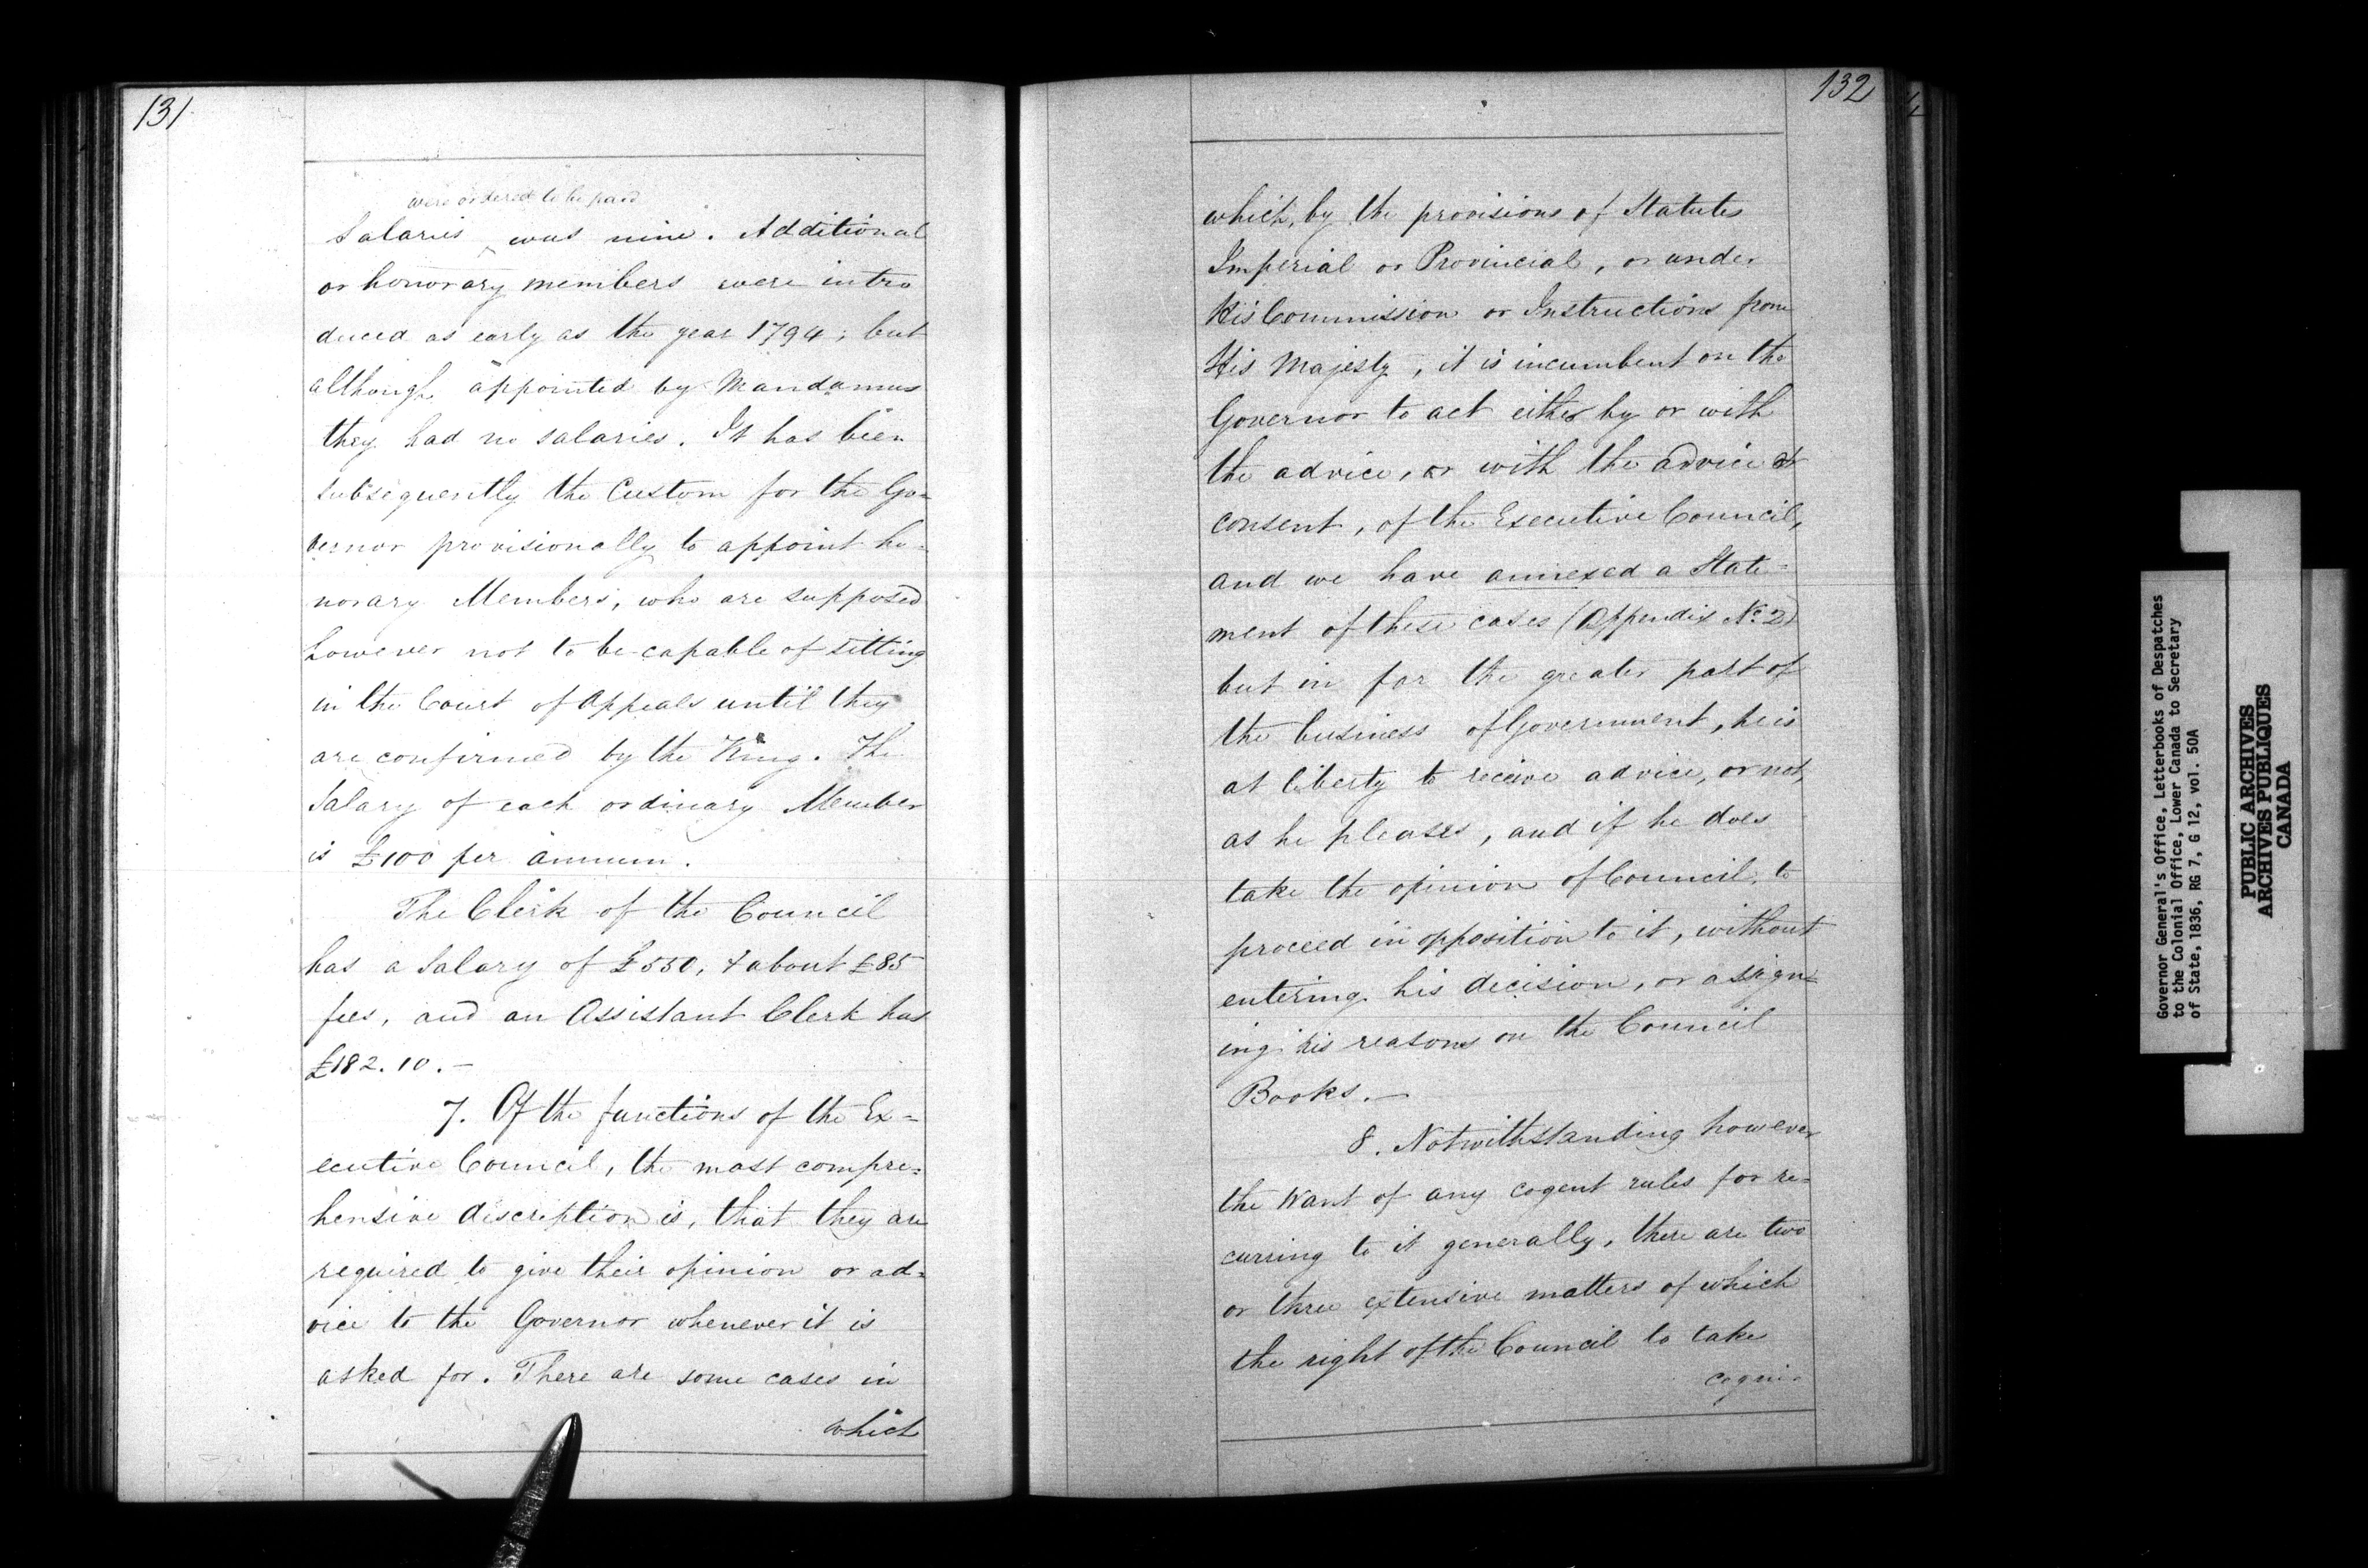 131
were ordered to be paid
Salaries ^ was nine. Additional
or honorary members were intro
duced as early as the year 1794; but
although appointed by Mandamus
they had no salaries. It has been
subsequently the Custom for the Go=
vernor provisionally to appoint ho=
norary Members, who are supposed
however not to be capable of sitting
in the Court of Appeals until they
are confirmed by the King. The
Salary of each ordinary Member
is £100 per annum.
The Clerk of the Council
has a Salary of £550, & about £85
fees, and an Assistant Clerk has
£182.10.-
7. Of the functions of the Ex=
ecutive Council, the most compre=
hensive discription is, that they are
required to give their opinion or ad=
vice to the Governor whenever it is
asked for. There are some cases in
which
132
which, by the provisions of Statutes
Imperial or Provincial, or under
His Commission or Instructions from
His Majesty, it is incumbent on the
Governor to act either by or with
the advice, or with the advice &
consent, of the Executive Council,
and we have annexed a State=
ment of these cases (Appendix No. 2)
but in far the greater part of
the business of Government, he is
at liberty to receive advice, or not,
as he pleases, and if he does
take the opinion of Council, to
proceed in opposition to it, without
entering his decision, or assign=
ing his reasons on the Council
Books.—
8. Notwithstanding however
the want of any cogent rules for re=
curring to it generally, there are two
or three extensive matters of which
the right of the Council to take
cogni=
Governor General's Office, Letterbooks of Despatches
to the Colonial Office, Lower Canada to Secretary
of State, 1836, RG 7, G 12, vol. 50A
PUBLIC ARCHIVES
ARCHIVES PUBLIQUES
CANADA